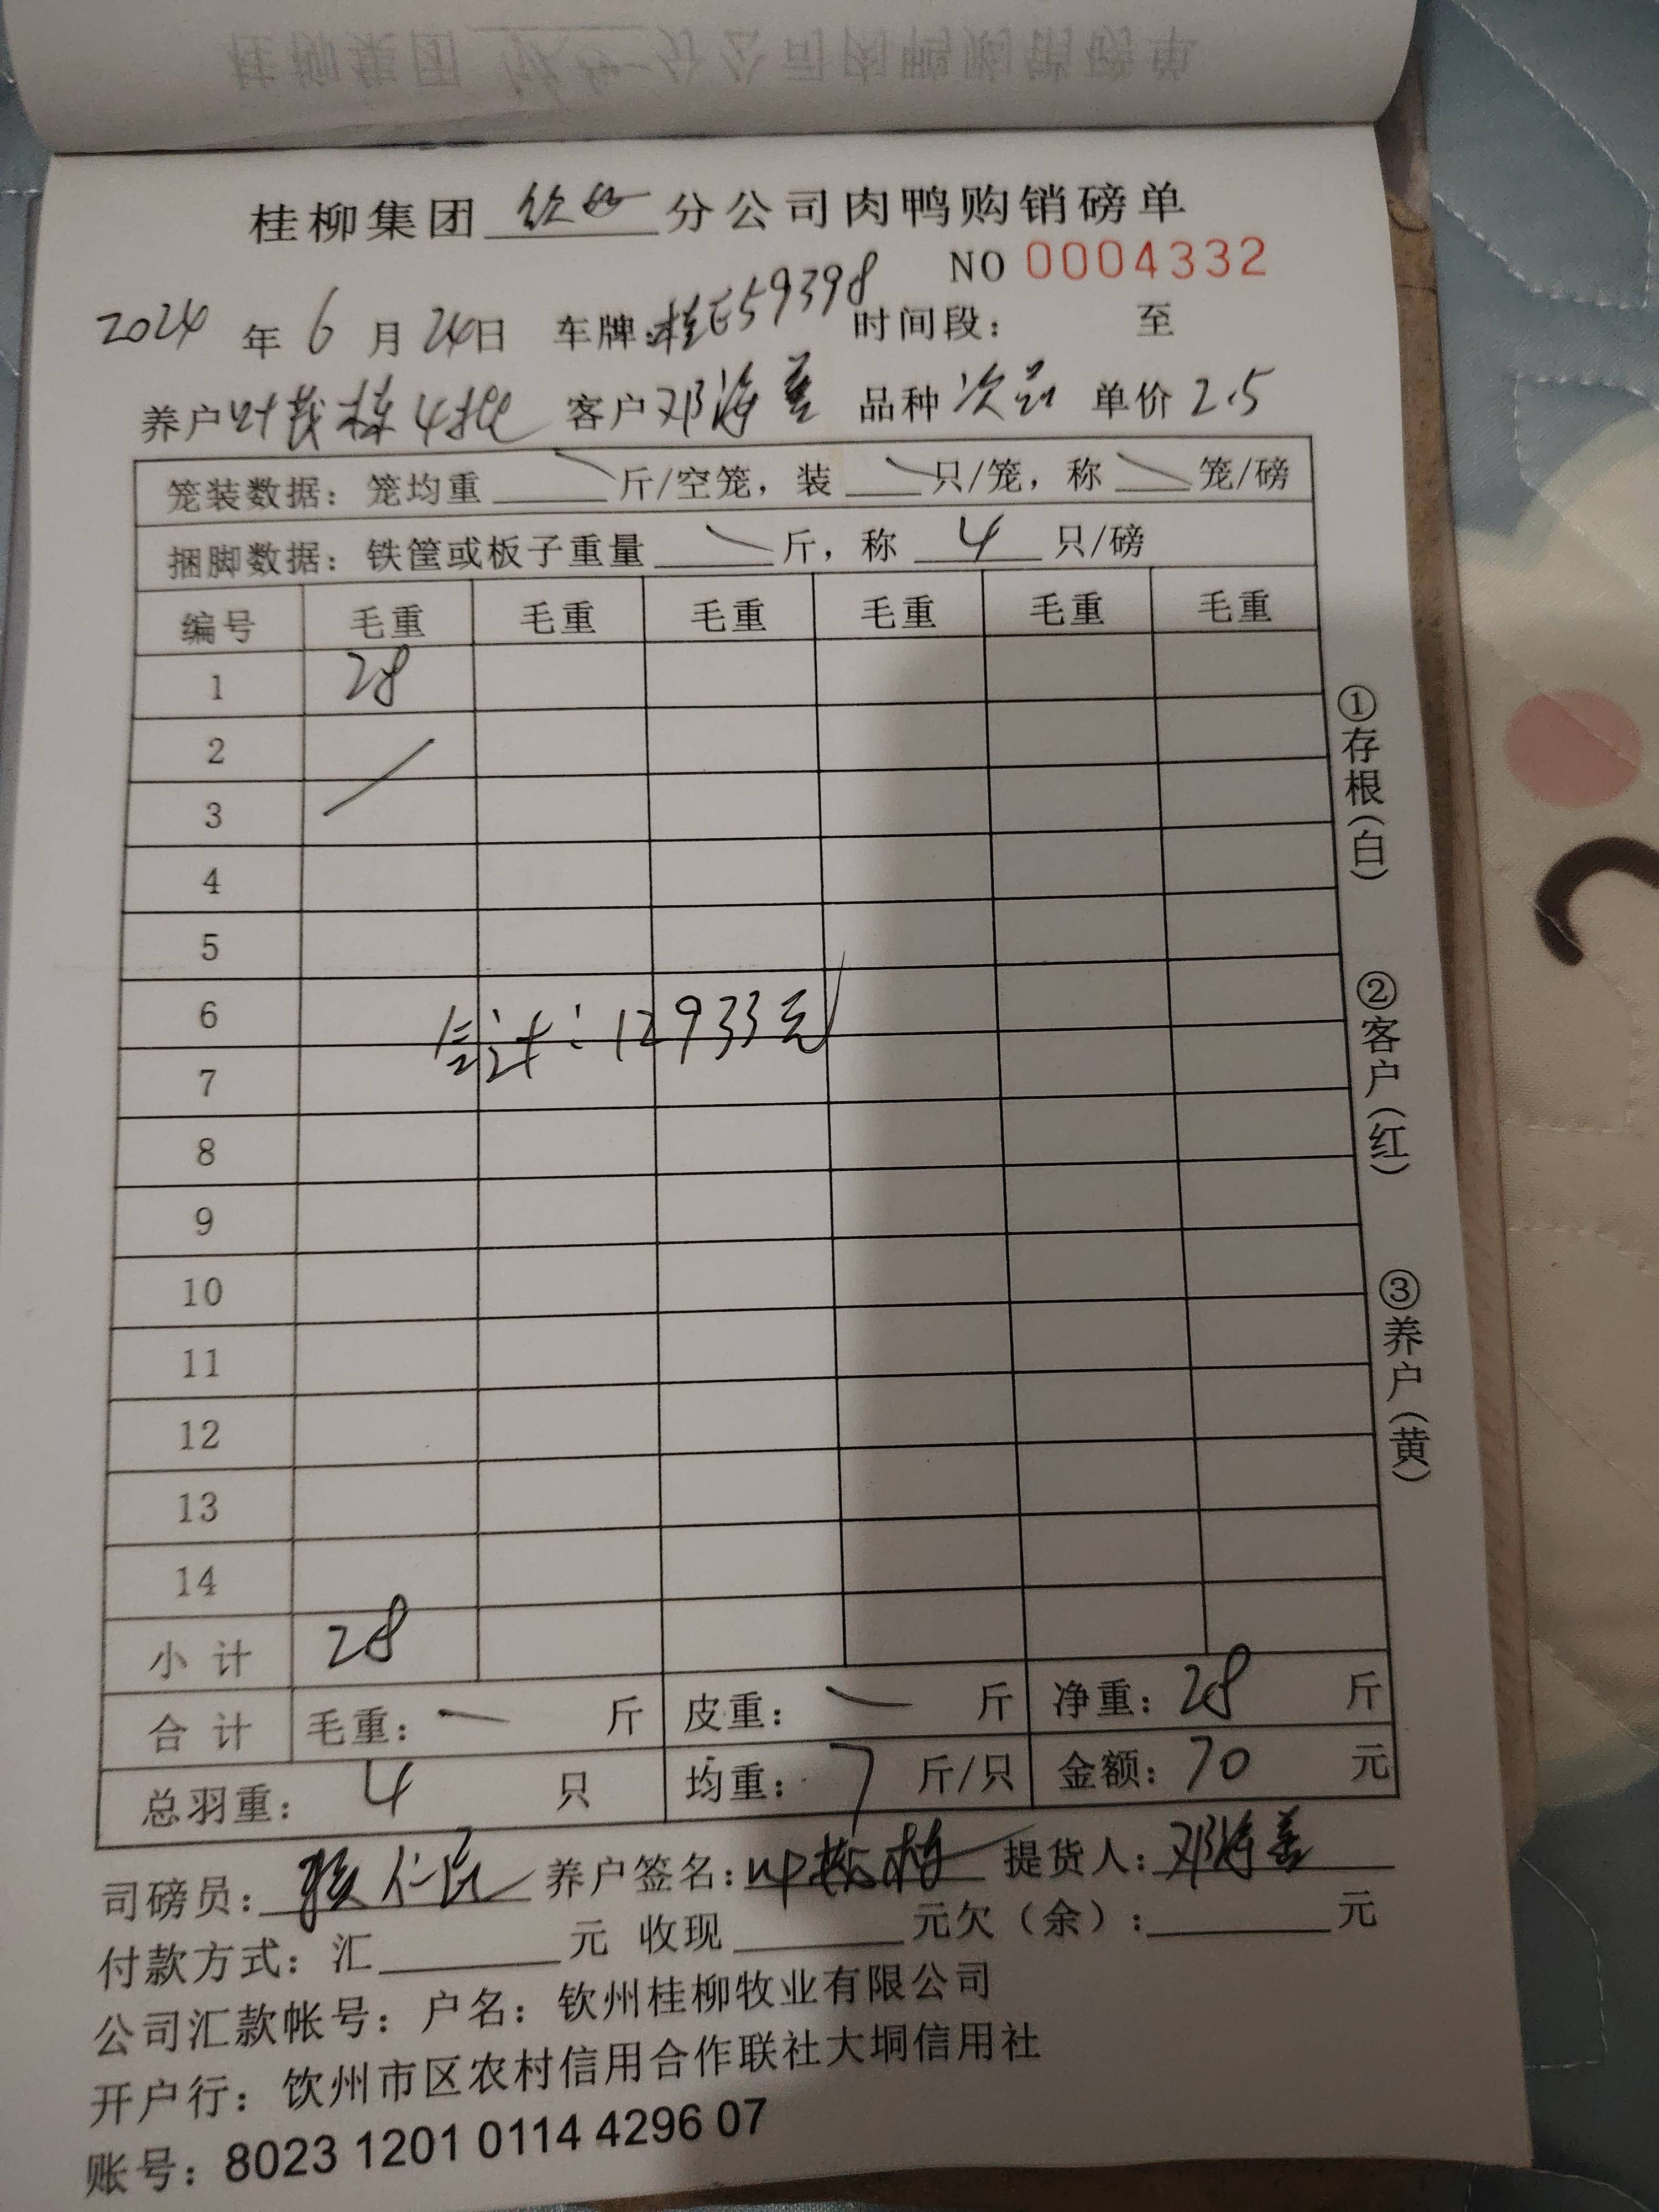 桂柳集团 钦州 分公司肉鸭购销磅单
NO 0004332
2024 年 6 月 24日 车牌:桂E59398 时间段: 至
养户 叶茂栋4批 客户 邓海 品种 次品 单价 2.5
笼装数据: 笼均重 斤/空笼, 装 只/笼, 称 笼/磅
捆脚数据: 铁筐或板子重量 斤, 称 4 只/磅
编号 毛重 毛重 毛重 毛重 毛重 毛重
1 28
2
3
4
5
6
总计: 12933元
7
8
9
10
11
12
13
14
小 计 28
合 计 毛重: 斤 皮重: 斤 净重: 28 斤
总羽重: 4 只 均重: 7 斤/只 金额: 70 元
司磅员: 养户签名: 叶茂栋 提货人: 邓海
付款方式: 汇 元 收现 元欠(余): 元
公司汇款帐号: 户名: 钦州桂柳牧业有限公司
开户行: 钦州市区农村信用合作联社大垌信用社
账号: 8023 1201 0114 4296 07
①存根(白)
②客户(红)
③养户(黄)